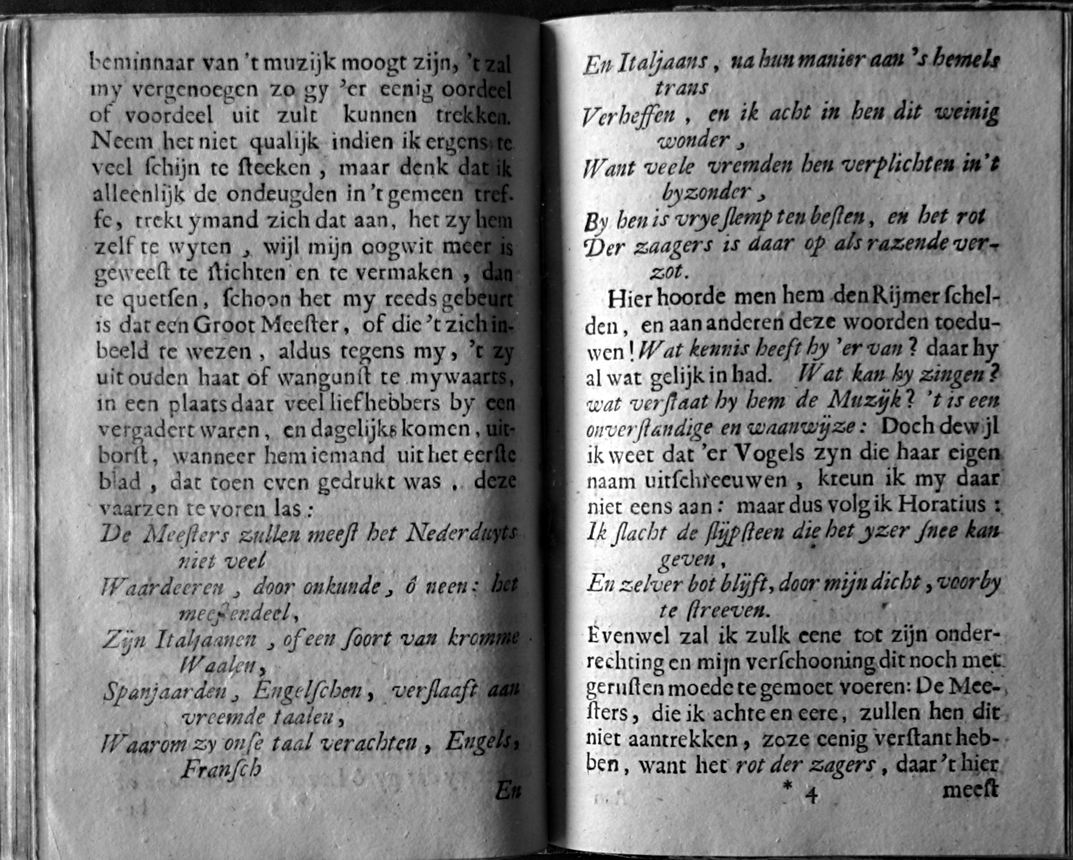 beminnaar van 't muzijk moogt zijn, 't zal
my vergenoegen zo gy 'er eenig oordeel
of voordeel uit zult kunnen trekken.
Neem het niet qualijk indien ik ergens te
veel ſchijn te ſteeken, maar denk dat ik
alleenlijk de ondeugden in 't gemeen tref-
fe, trekt ymand zich dat aan, het zy hem
zelf te wyten, wijl mijn oogwit meer is
geweeſt te ſtichten en te vermaken, dan
te quetſen, ſchoon het my reeds gebeurt
is dat een Groot Meeſter, of die 't zich in-
beeld te wezen, aldus tegens my, 't zy
uit ouden haat of wangunſt te mywaarts,
in een plaats daar veel liefhebbers by een
vergadert waren, en dagelijks komen, uit-
borſt, wanneer hem iemand uit het eerſte
blad, dat toen even gedrukt was, deze
vaarzen te voren las:
De Meeſters zullen meeſt het Nederduyts
niet veel
Waardeeren, door onkunde, ô neen: het
meeſtendeel,
Zijn Italjaanen, of een ſoort van kromme
Waalen,
Spanjaarden, Engelſchen, verſlaaft aan
vreemde taalen,
Waarom zy onſe taal verachten, Engels,
Franſch
En
En Italjaans, na hun manier aan 's hemels
trans
Verheffen, en ik acht in hen dit weinig
wonder,
Want veele vremden hen verplichten in 't
byzonder,
By hen is vrye ſlemp ten beſten, en het rot
Der zaagers is daar op als razende ver-
zot.
Hier hoorde men hem den Rijmer ſchel-
den, en aan anderen deze woorden toedu-
wen! Wat kennis heeft hy 'er van? daar hy
al wat gelijk in had. Wat kan hy zingen?
wat verſtaat hy hem de Muzijk? 't is een
onverſtandige en waanwijze: Doch dewijl
ik weet dat 'er Vogels zyn die haar eigen
naam uitſchreeuwen, kreun ik my daar
niet eens aan: maar dus volg ik Horatius:
Ik ſlacht de ſlijpſteen die het yzer ſnee kan
geven,
En zelver bot blijft, door mijn dicht, voorby
te ſtreeven.
Evenwel zal ik zulk eene tot zijn onder-
rechting en mijn verſchooning dit noch met
geruſten moede te gemoet voeren: De Mee-
ſters, die ik achte en eere, zullen hen dit
niet aantrekken, zoze eenig verſtant heb-
ben, want het rot der zagers, daar 't hier
* 4 meeſt